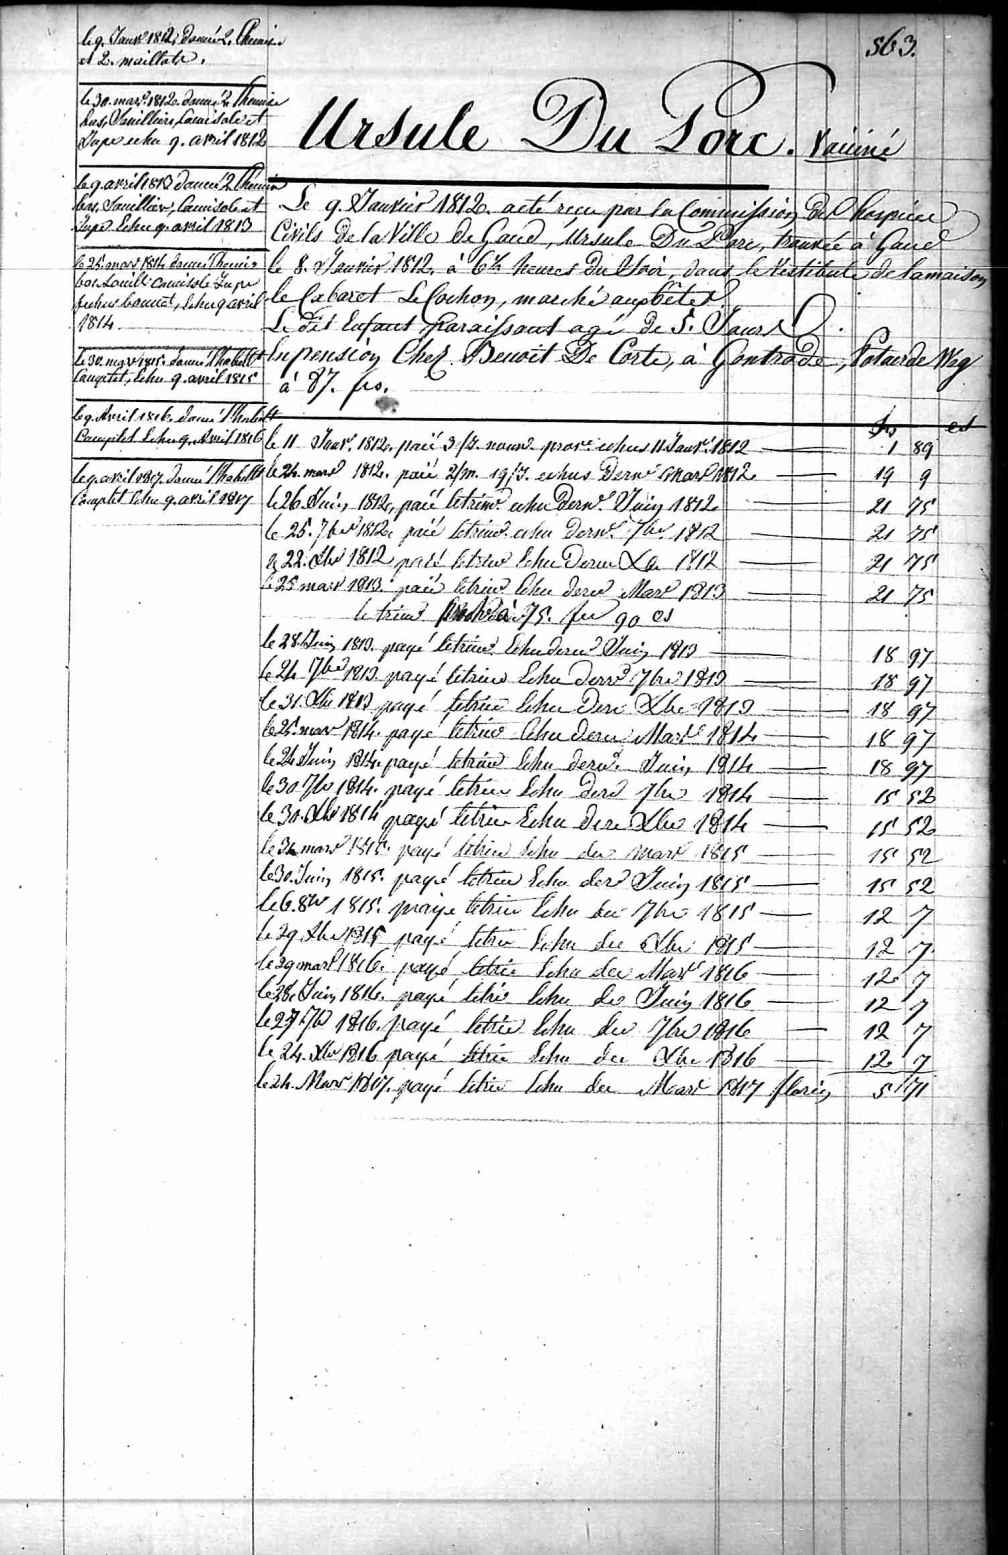 563.
le 9. Janvr 1812, donné 2. Chemise
et 2. maillots.
le 30. mars 1812. donné 2 Chemise
bas, Souillier, Camisole et
Jupe echu 9. avril 1812
le 9 avril 1813 donné 2 Chemise
bas, Souillier, Camisole et
Jupe Echu 9. avril 1813
le 25. mars 1814 donné Chemise
bas Souill: Camisole Jupe
bonnet, Echu 9 avril
1814
le 30. mars 1815. donné l'habill
Complet, Echu 9. avril 1815
le 9. Avril 1816. donné l'habill
Complet Echu 9. Avril 1816
le 9 avril 1817. donné l'habill
Complet Echu 9. avril 1817
Ursule Du Porc. Vaciné
Le 9. Janvier 1812. acté reçu par la Commission des hospices
Civils de la Ville de Gand, Ursule Du Porc, trouvée à Gand
le 8. Janvier 1812. à 6½ heures Du Soir, dans le Vestibule de la maison
le Cabaret Le Cochon, marché aux bêtes.
Le dit Enfant paraissant agé de 5. Jours.
En pension Chez Benoit De Corte, à Gontrode, Potaerde Weg
à 87. frs.
frs cs
le 11 Janvr. 1812. paié 3 fs. nour. prov. echus 11 Janvr. 1812 1 89
le 24. mars 1812. paié 2/m. 19/J. echus Dernr Mars 1812 19 9
le 26. Juin 1812, paié letrimr echu Dernr. Juin 1812 21 75
le 25. 7bre 1812. paié letrimr echu Dernr. 7br. 1812 21 75
le 22. Xbr 1812 paié letrimr Echu Dernr Xbr 1812 21 75
le 25 mars 1813. paié letrimr Echu dernr Mars 1813 21 75
le trimr à 75. frs 90 cs
le 28. Juin 1813. payé letrimr Echu dernr Juin 1813 18 97
le 24. 7bre 1813. payé letrimr Echu Dernr 7bre 1813 18 97
le 31. Xbr 1813 payé letrimr Echu Dern Xbre 1813 18 97
le 25. mars 1814. payé letrimr Echu dernr Mars 1814 18 97
le 24 Juin 1814. payé letrimr Echu dernr. Juin 1814 18 97
le 30 7br 1814. payé letrim Echu der 7br 1814 15 52
le 30. Xbr 1814 payé letrim Echu der Xbre 1814 15 52
le mars 1815. payé letrim Echu der mars 1815 15 52
le 30. Juin 1815. payé letrim Echu der Juin 1815 15 52
le 6. 8br 1815. payé letrim Echu der 7br 1815 12 7
le 29. Xbr 1815 payé letrim Echu der Xbr 1815 12 7.
le 29 mars 1816. payé letrim Echu der Mars 1816 12 7
le 28 Juin 1816. payé letri Echu der Juin 1816 12 7
le 27. 7br 1816. payé letrim Echu der 7br 1816 12 7
le 24. Xbr 1816 payé letrim Echu der Xbr 1816 12 7
le 24. Mars 1817. payé letrim Echu der Mars 1817 florins 5 71